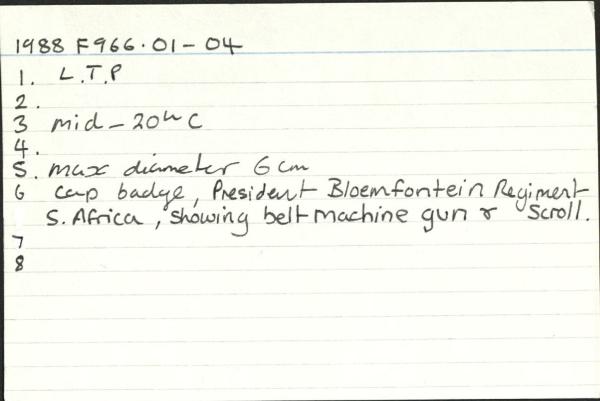 1988 F966.01-04
1. L.T.P
2.
3 mid-20th C
4.
5. max diameter 6cm
6 cap badge, President Bloemfontein Regiment
S. Africa, showing belt machine gun & Scroll.
7
8